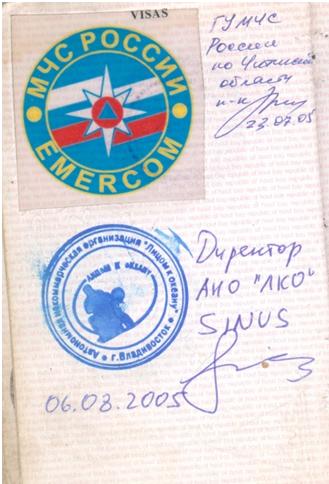 VISAS
МЧС РОССИИ
EMERCOM
ГУ МЧС
России
по Читинской
области
23.07.05
Автономная некоммерческая организация "Лицом к океану"
ЛИЦОМ К ОКЕАНУ
г. Владивосток
Директор
АНО "ЛКО"
SINUS
06.08.2005